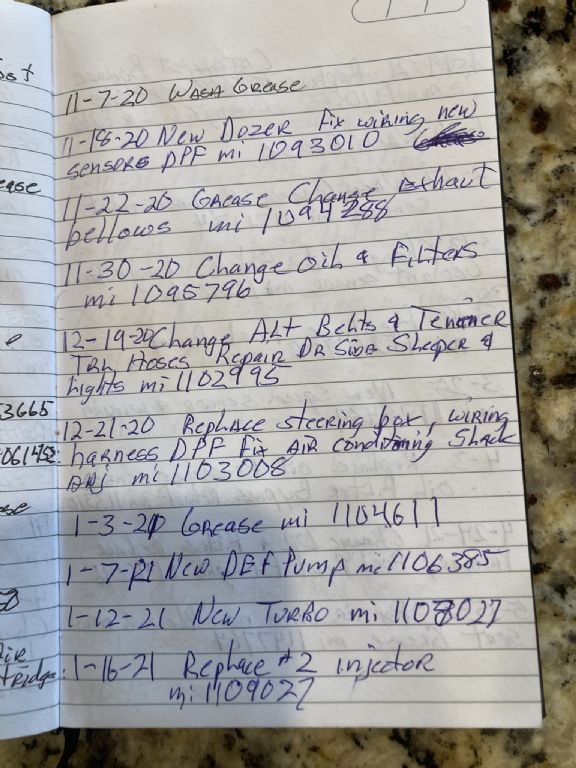 11-7-20 Wash Grease
11-18-20 New Dozer Fix wiring new
sensors DPF mi 1093010
11-22-20 Grease Change Exhaut
bellows mi 1094288
11-30-20 Change Oil & Filters
mi 1095796
12-19-20 Change Alt Belts & Tensiner
TRL Hoses Repair DR Side Sleeper &
Lights mi 1102995
12-21-20 Replace steering box, wiring
harness DPF Fix Air conditioning Slack
adj mi 1103008
1-3-21 Grease mi 1104611
1-7-21 New DEF Pump mi 1106385
1-12-21 New Turbo mi 1108027
1-16-21 Replace #2 injector
mi 1109027